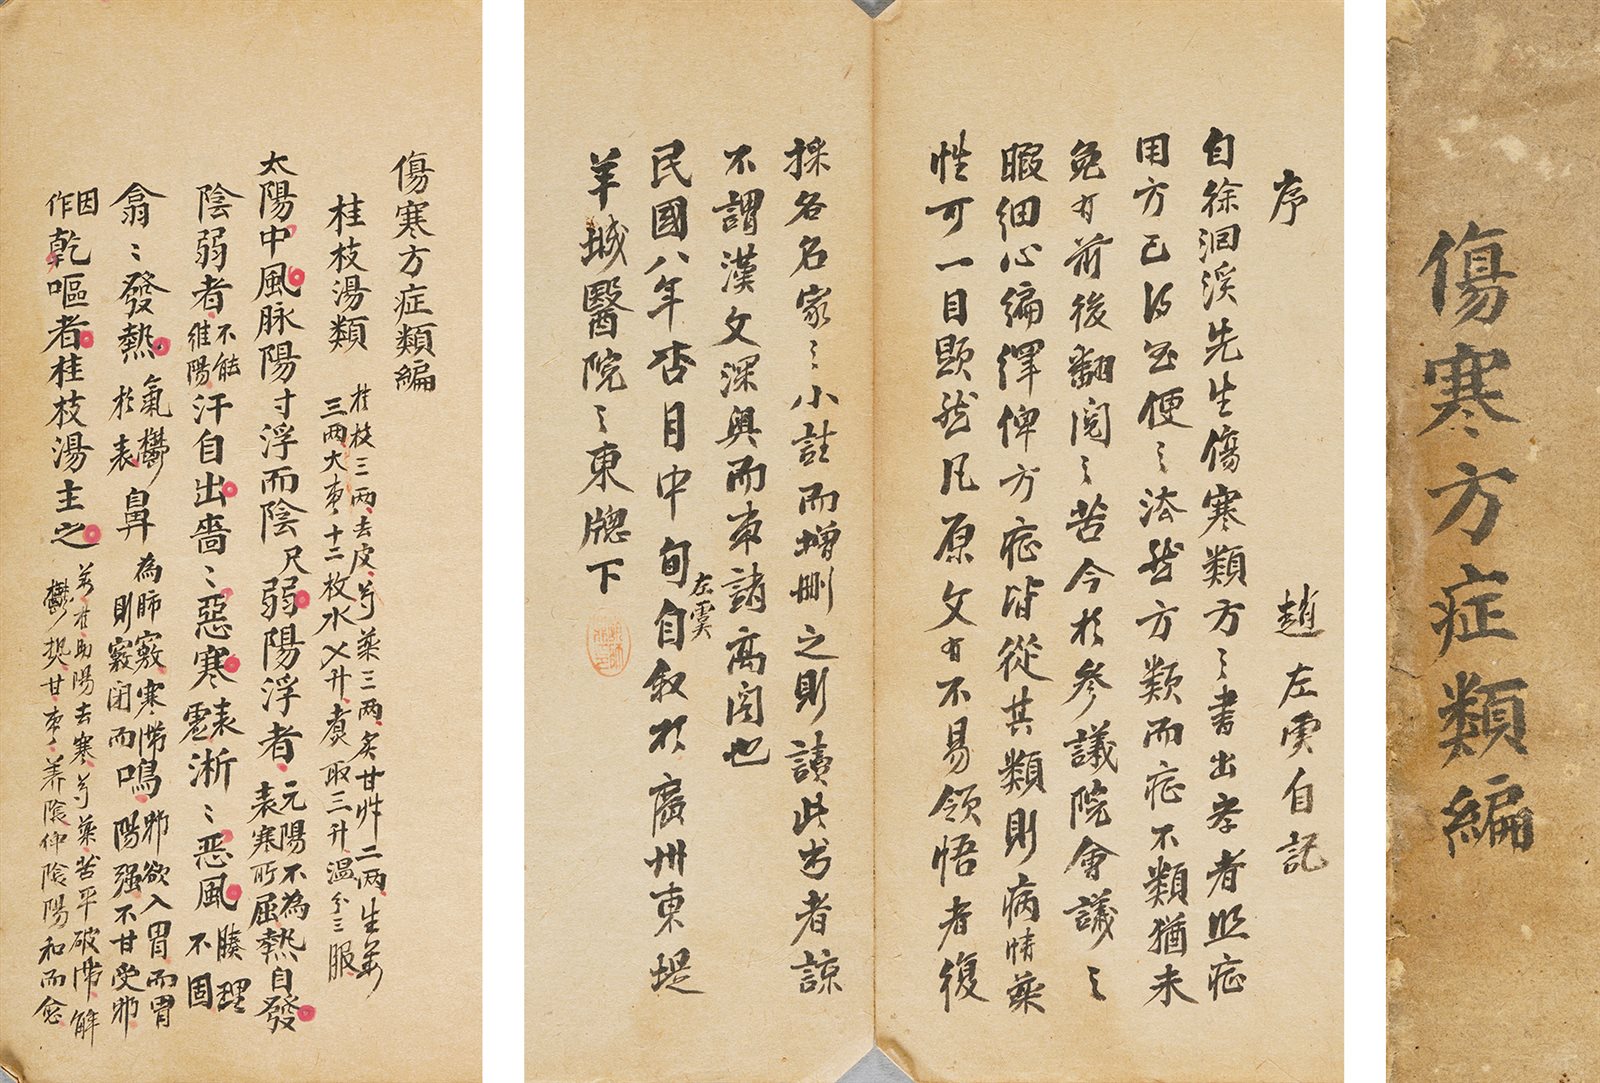 傷寒方症類編
序 趙左虞自記
自徐洄溪先生傷寒類方之書出孝者照症
用方已得至便之法然方類而症不類猶未
免有前後翻閱之苦今於參議院會議之
暇細心編繹俾方症皆從其類則病情藥
性可一目顯然凡原文有不易領悟者復
採各名家之小註而增刪之則讀此书者諒
不謂漢文深奧而束諸高閣也
民國八年杏月中旬左虞自叙於廣州東堤
羊城醫院之東牕下
傷寒方症類編
桂枝湯類 桂枝三兩去皮芍藥三兩炙甘艸二兩生姜三兩大棗十二枚水乂升煮取三升温分三服
太陽中風脉陽寸浮而陰尺弱陽浮者元陽不為表寒所屈熱自發
陰弱者不能維陽汗自出嗇〻惡寒表虛淅〻恶風腠理不固
翕〻發熱氣鬱於表鼻為肺竅寒滯則竅闭而鳴邪欲入胃而胃陽强不甘受邪
因作乾嘔者桂枝湯主之姜桂助陽去寒芍藥苦平破滯解鬱熱甘棗養陰仲陰陽和而愈